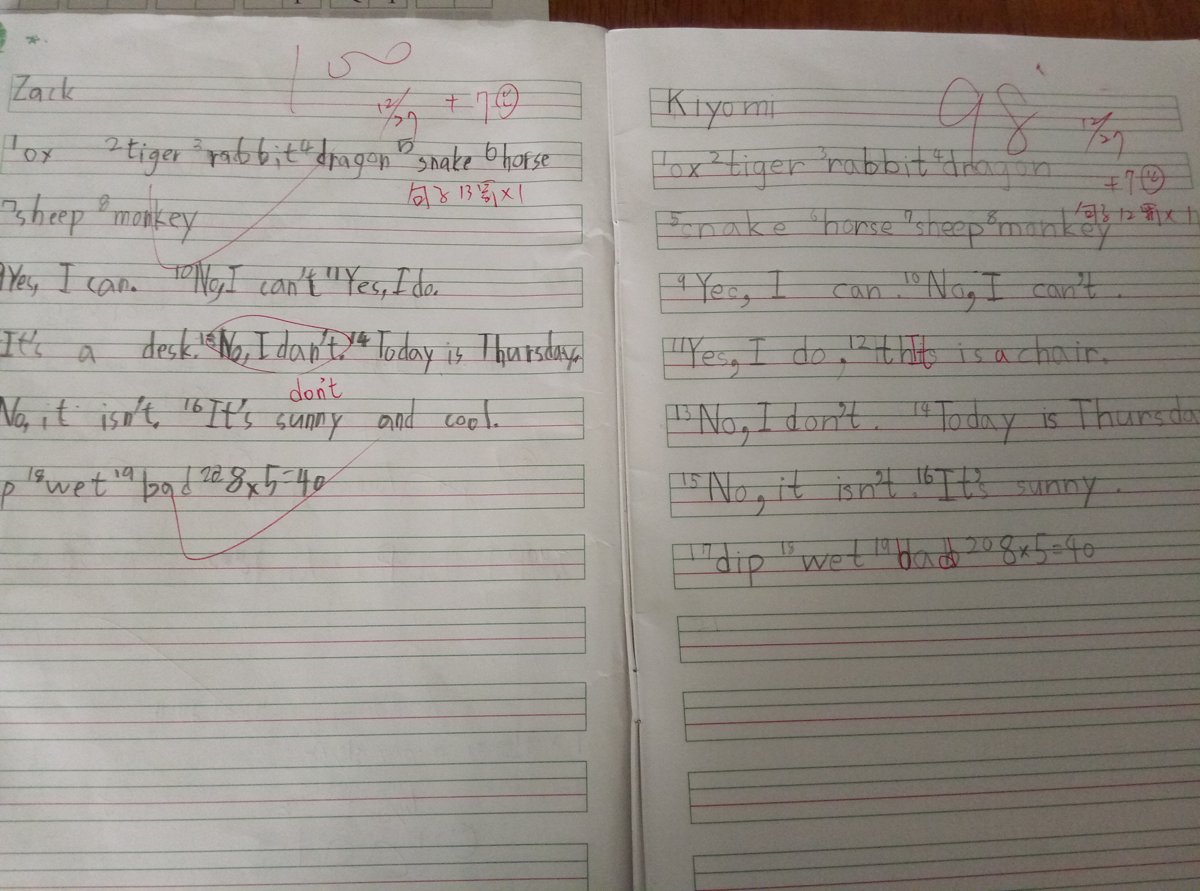 Zack
100
12/27 + 7
1 ox 2 tiger 3 rabbit 4 dragon 5 snake 6 horse
句子13罰x1
7 sheep 8 monkey
9 Yes, I can. 10 No, I can't 11 Yes, I do.
It's a desk. 13 No, I dan't. 14 Today is Thursday.
don't
No, it isn't. 16 It's sunny and cool.
p 18 wet 19 bad 20 8x5=40
Kiyomi
98
12/27
1 ox 2 tiger 3 rabbit 4 dragon
+7
句子12罰x1
5 snake 6 horse 7 sheep 8 monkey
9 Yes, I can. 10 No, I can't.
11 Yes, I do, 12 It's is a chair.
13 No, I don't. 14 Today is Thursda
15 No, it isn't. 16 It's sunny.
17 dip 18 wet 19 bad 20 8x5=40